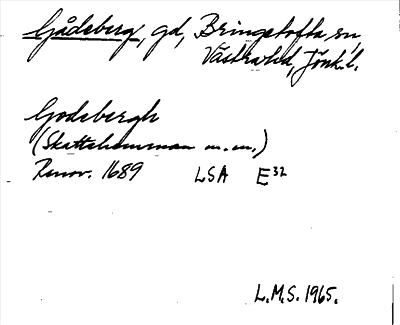 Gådeberg, gd, Bringetofta sn,
Västra hd, Jönk. l.
Godebergh
(Skattehemman m.m.)
Renov. 1689 LSA E³²
L.M.S. 1965.